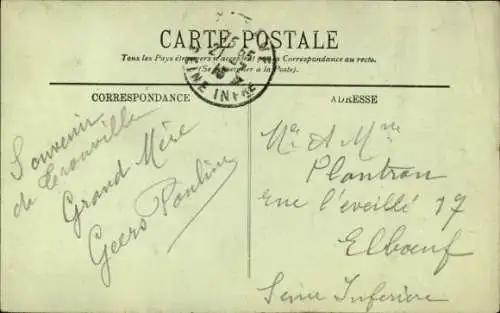 CARTE POSTALE
Tous les Pays étrangers n'acceptent pas la Correspondance au recto.
(Se renseigner à la Poste).
SEINE INFRE
CORRESPONDANCE
ADRESSE
Souvenir
de Trouville
Grand Mère
Geers Pauline
Mr & Mme
Plantron
rue l'éveillé 17
Elboeuf
Seine Inferiere